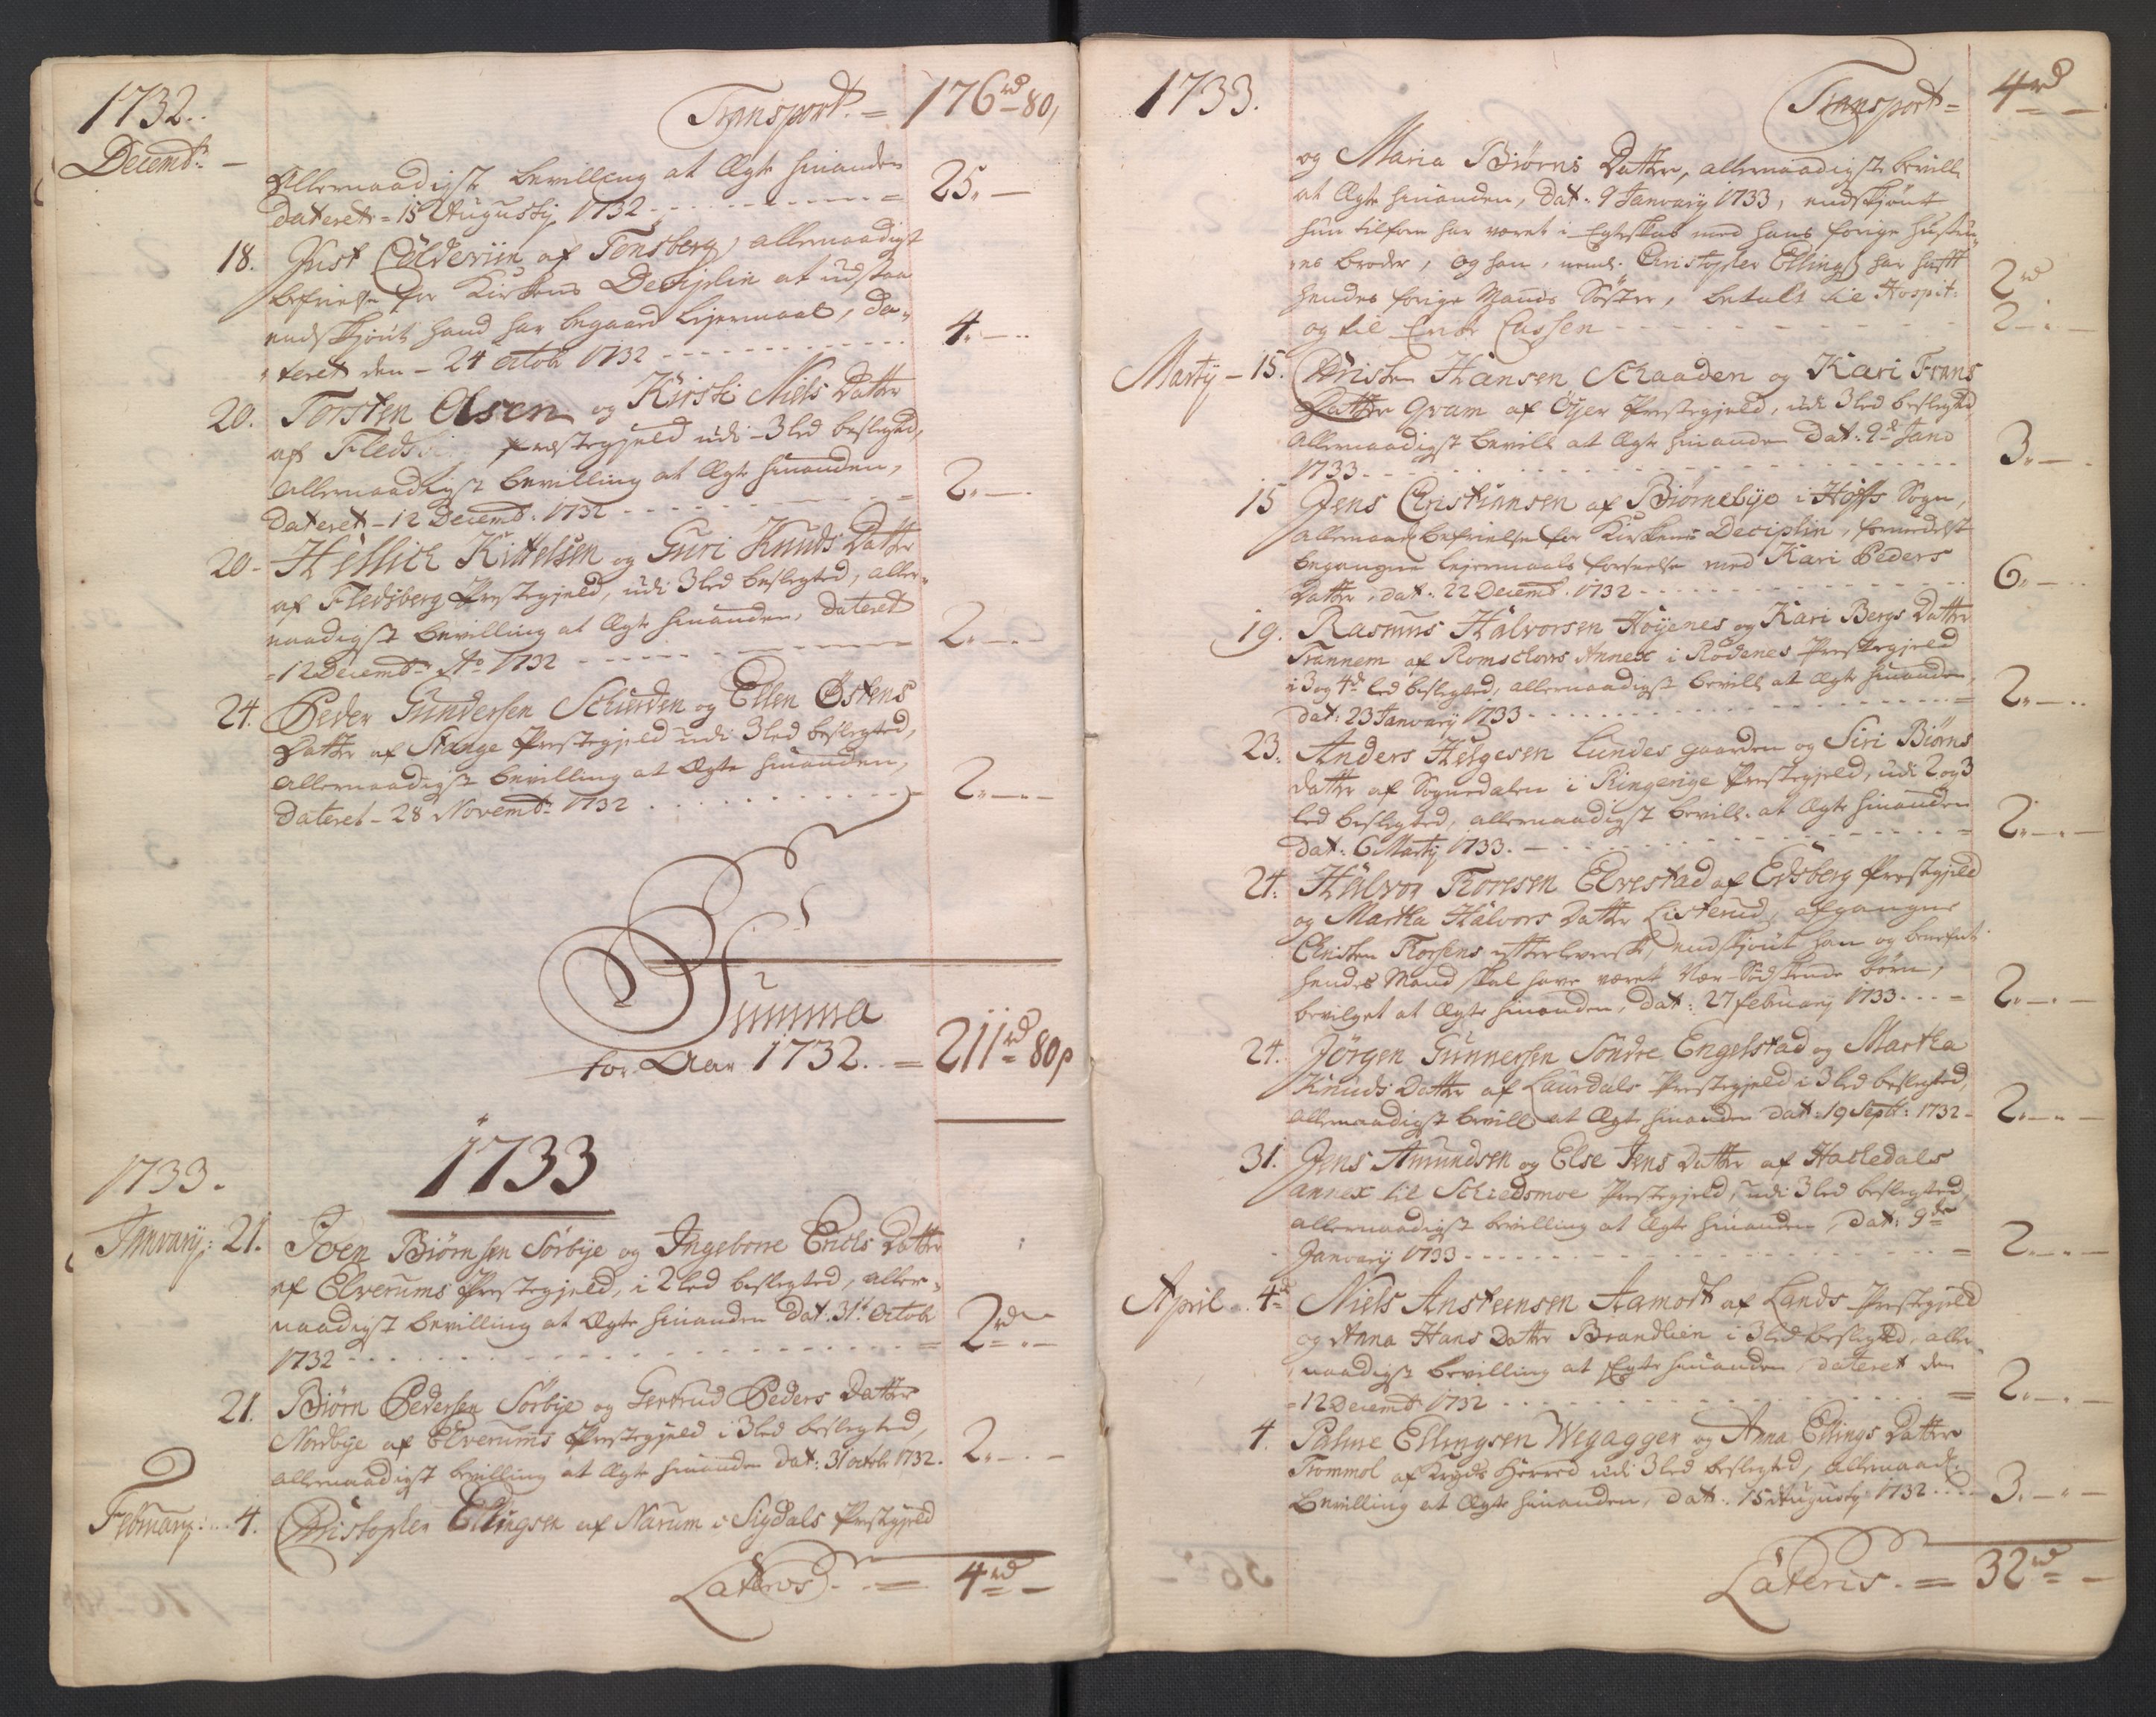 1732.
Decembr
Transport. = 176rd - 80,
Allernaadigste bevilling at Ægte hinanden
dateret = 15 Augustij 1732 - - - = 25. -
18. Just Cölderiin af Tønsberg, allernaadigst
befrielse for Kirkens Deciplin at udstaa
endskjønt hand har begaaed Lejermaal, da,,
,,teret den - 24 octob 1732 - - - 4. -
20. Torsten Olsen og Kirsti Niels Datter
af præstegjeld udi - 3 led beslegted,
Allernaadigst bevilling at Ægte hinanden,
dateret - 12 Decembr: 1732 - - - = 2. -
20 - Kittelsen og Guri Knuds Datter
af Fledsberg Præstegjeld, udi 3 led beslegted, aller,,
naadigst bevilling at Ægte hinanden, dateret
= 12 Decembr Ao 1732 - - - 2. -
24. Peder Gundersen og Ellen Østens
Datter af Stange Præstegjeld udi 3 led beslegted,
Allernaadigst bevilling at Ægte hinanden,
dateret - 28 Novembr 1732 - - - 2. -
Summa
for Aar 1732. = 211rd 80β
1733
1733.
Januarij: 21. Joen Biørnsen Sørbye og Ingeborre Erichs Datter
af Elverums Præstegjeld, i 2 led beslegted, aller,,
naadigst bevilling at Ægte hinanden dat. 31t octob
1732 - - - = 2rd -
21. Biørn Pedersen Sørbye og Gertrud Peders Datter
Nordbye af Elverums Præstegjeld i 3 led beslegted,
allernaadigst bevilling at Ægte hinanden dat: 31 octob 1732. 2. -
Februarij: 4. Christopher Ellingsen af Narum i Sigdals Præstgjeld
Lateris. = 4rd -
1733.
Transport = 4rd -
og Maria Biørns Datter, allernaadigste bevill:
at Ægte hinanden, dat. 9 Januarij 1733, endskjønt
hun tilforn har været i Egteskab med hans forige Hustru,,
,,es broder, og han, neml. Christopher Ellings: har hafft
hendes forige Mands Søster, betalt til Hospit: 2rd
og til Cassen - - - 2. -
Martij - 15. Christen Hansen Schaaden og Kari Frans
Datter Qvam af Öyer Præstegjeld, udi 3 led beslegted
Allernaadigst bevill: at Ægte hinanden dat: 9de Janr
1733 - - - 3. -
15 Jens Christiansen af Biørnebye i Hoffs Sogn,
allernaad: befrielse for Kirkens Deciplin, formedelst
begangne Lejermaals forseelse med Kari Peders
Datter, dat: 22 Decembr. 1732 - - - 6. -
19. Rasmus Halvorsen Höyenes og Kari Bergs Datter
Trannem af Romschovs Annex i Rødenes Præstegjeld
i 3 og 4de led beslegted, allernaadigst bevill: at Ægte hinanden,
dat: 23 Januarij 1733 - - - = 2. -
23. Anders Helgesen Lundes gaarden og Siri Biørns
datter af Sognedalen i Ringerige Præstegjeld, udi 2 og 3
led beslegted, allernaadigst bevill. at Ægte hinanden
dat. 6 Martij 1733. - - - = 2. -
24. Halvor Thoresen Elvestad af Edsberg Præstgjeld
og Martha Halvors Datter Listerud, afgangne
Christen Thorsens effterleverske, endskjønt han og
hendes Mand skal have været Nær-Sødskende børn,
bevilget at Ægte hinanden, dat: 27 februarij 1733 - - = 2. -
24. Jörgen Gunnersen Söndre Engelstad og Martha
Knuds Datter af Laurdals Præstegjeld i 3 led beslegted,
allernaadigst bevill: at Ægte hinanden dat: 19 Septbr: 1732 - 2. -
31. Jens Amundsen og Else Jens Datter af Hachedals
annex til Schiedsmoe Præstegjeld, udi 3 led beslegted,
allernaadigst bevilling at Ægte hinanden, dat: 9de
Januarij 1733 - - - = 2. -
April . 4de Niels Ansteensen Aamodt af Lands Præstegjeld
og Anna Hans Datter Brandlien i 3 led beslegted, aller,,
naadigst bevilling at Ægte hinanden, dateret den
= 12 Decembr 1732 - - - = 2. -
4. Palme Ellingsen Wegagger og Anna Ellings Datter
Trommol af Krydsherred udi 3 led beslegted, allernaad:
bevilling at Ægte hinanden, dat: 15 Augustij 1732 . . . 3. -
Lateris. = 32rd -